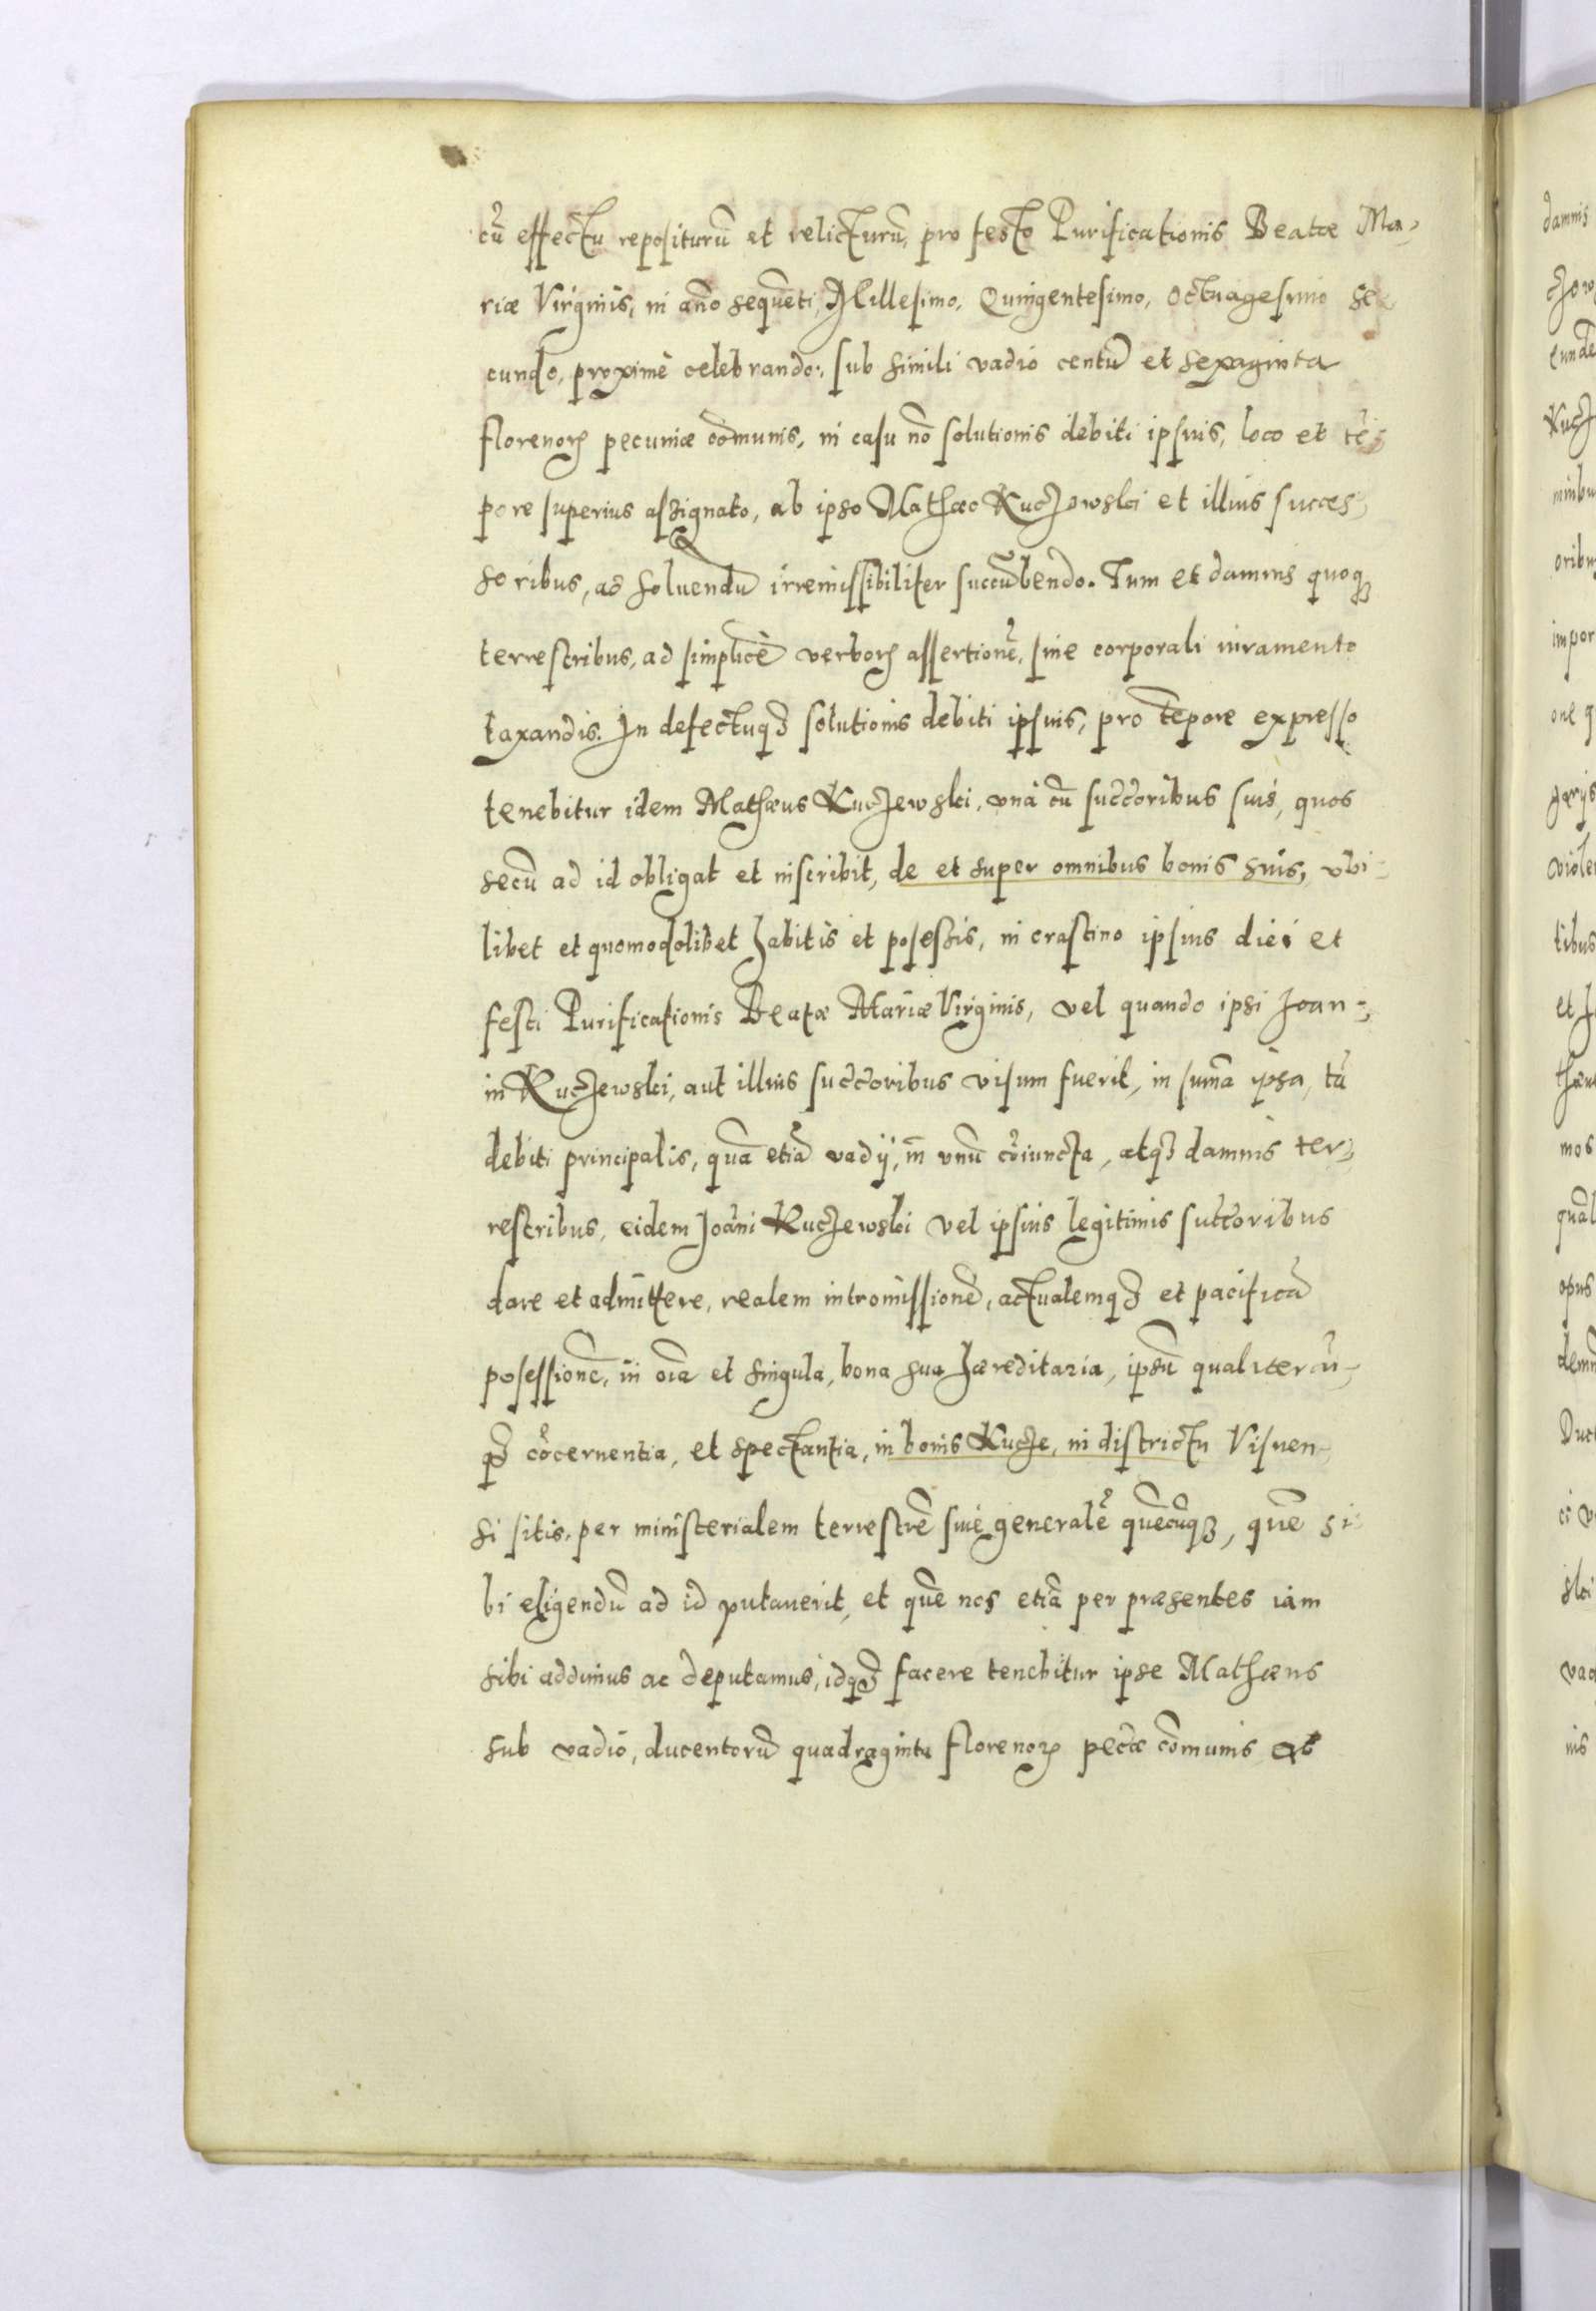 cũ effectu repositurũ et relicturũ, pro festo Purificationis Beatæ Ma-
riæ Virginis, in año sequẽti, Millesimo, Quingentesimo, Octuagesimo Se
cundo, proximè celebrando, sub simili vadio centũ et sexaginta
florenorꝝ pecuniæ cõmunis, in casu nõ solutionis debiti ipsius, loco et tẽ-
pore superius assignato, ab ipso Mathæo Kuczowski et illius succes-
soribus, ad soluendũ irremissibiliter succũbendo. Tum et damnis quoqꝫ
terrestribus, ad simplicẽ verborꝝ assertionẽ, sine corporali iuramento
taxandis. In defectuqꝫ solutionis debiti ipsius, pro tẽpore expresso
tenebitur idem Mathæus Kuczewski, vnà cũ succ̃oribus suis, quos
secũ ad id obligat et inscribit, de et super omnibus bonis suis, vbi-
libet et quomodolibet habitis et posessis, in crastino ipsius diei et
festi Purificationis Beatæ Mariæ Virginis, vel quando ipsi Joan-
ni Kuczewski, aut illius succ̃oribus visum fuerit, in sum̃a ipsa, tã
debiti principalis, quã etiã vadij, in vnũ cõiuncta, atqꝫ damnis ter-
restribus, eidem Joãni Kuczewski vel ipsius legitimis succ̃oribus
dare et admittere, realem intromissionẽ, actualemqꝫ et pacificã
posessionẽ, in oĩa et singula, bona sua hæreditaria, ipsũ qualitercũ-
qꝫ cõcernentia, et spectantia, in bonis Kucze, in districtu Visnen-
si sitis, per ministerialem terrestrẽ siue generalẽ quẽcũqꝫ, quẽ si
bi eligendũ ad id putauerit, et quẽ nos etiã per præsentes iam
sibi addimus ac deputamus, idqꝫ facere tenebitur ipse Mathæus
sub vadio, ducentorũ quadraginta florenorꝝ pec̃æ cõmunis ab